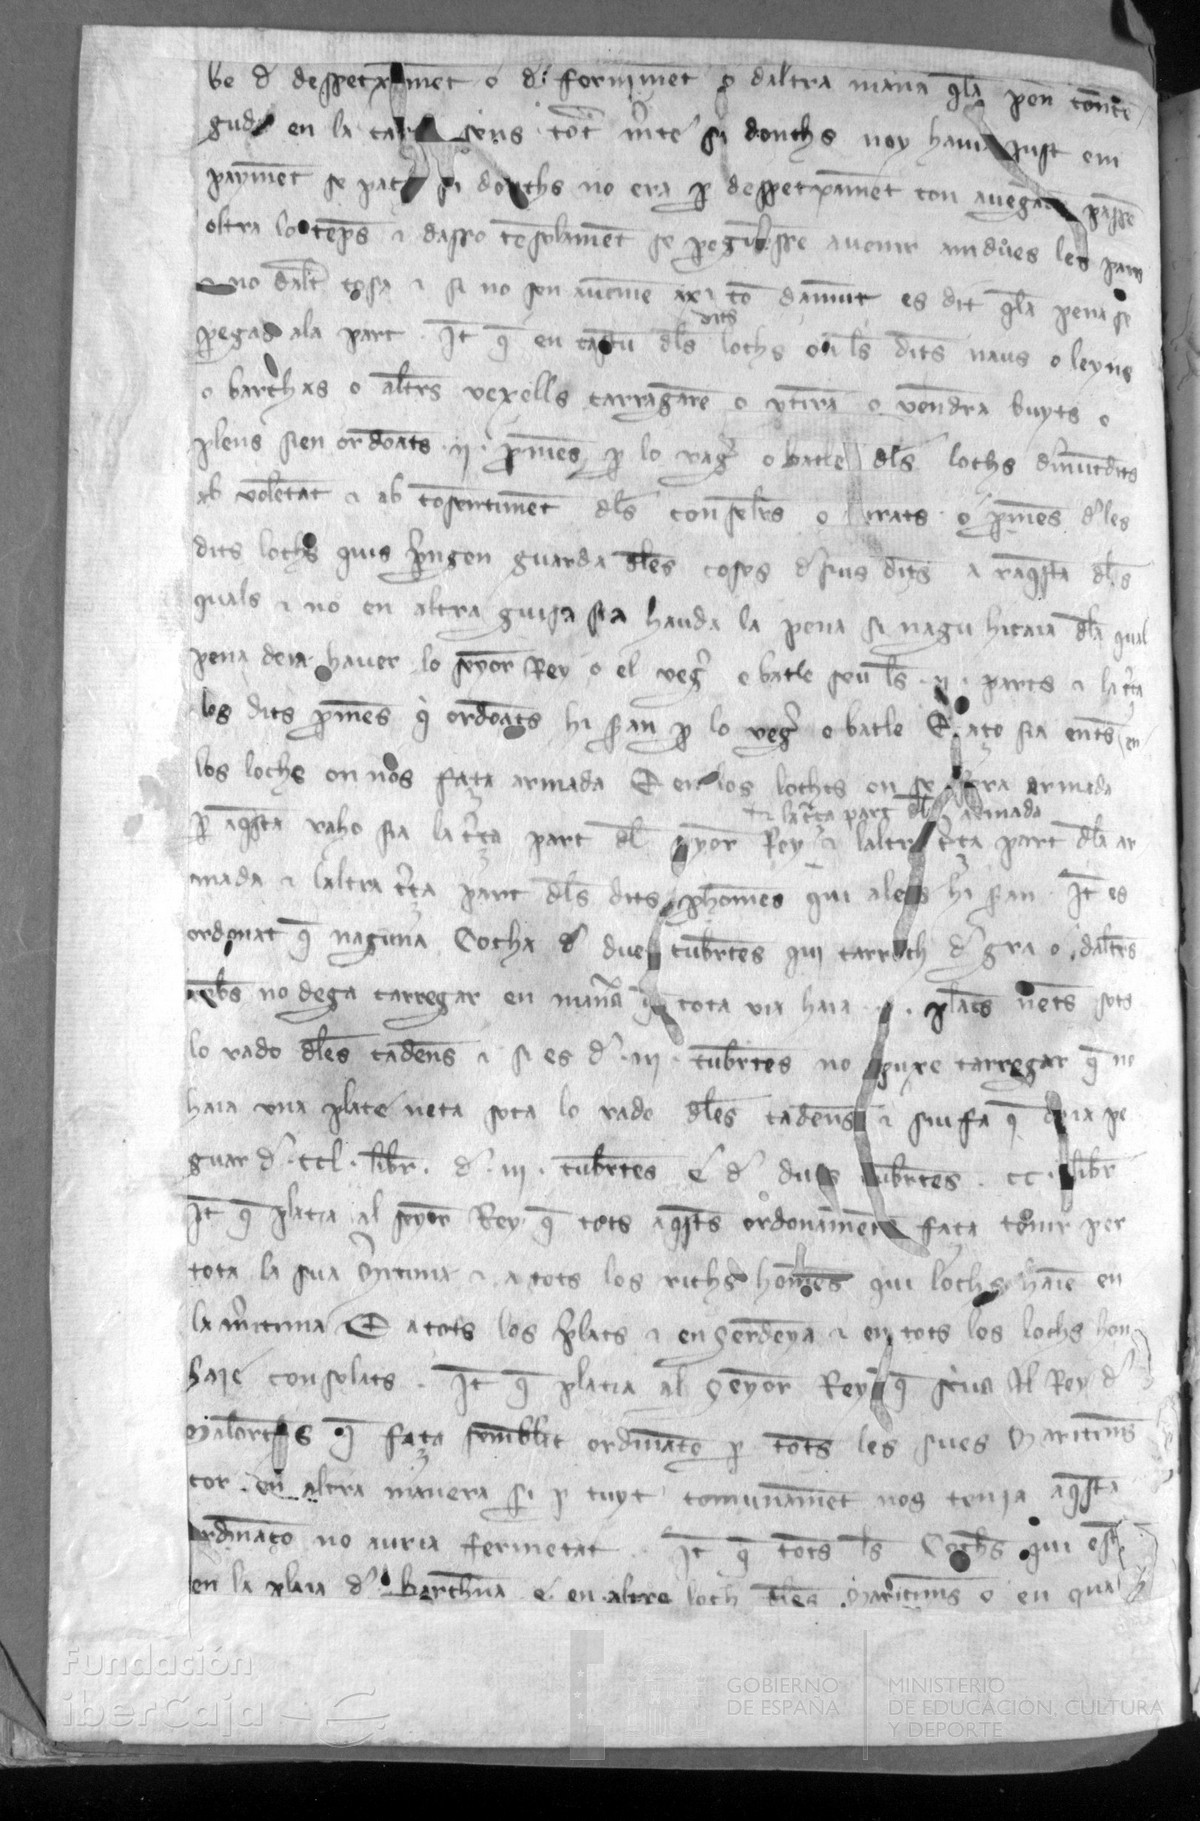 be d despetxament o d forniment o daltra mana qla pena conte
guda en la car sens tot mte si donchs noy havia just em
payment se pac si donchs no era p despetxament con avengan passe
oltra lo temps e dasso tansolament se pogues avenir amdues les pars
e no dalt cosa e si no sen avenie axi co damunt es dit qla pena se
pegas ala part It q en cascu dls dits lochs on ls dits naus o leyns
o barchas o altrs vexells carragare o o vendra buyts o
plens sien ordonats ii promes p lo vag o batle dls lochs damuntdits
ab voletat e ab consentiment dls conselrs o jurats o pmes d les
dits lochs quis prengen guarda dles coses d sus dits a raqsta dls
quals e no en altra guisa sia hauda la pena si nagu hicaia dla qual
pena deia haver lo senyor Rey o el veg o batle seu ls ii parts e la tta
los dits pmes q ordonats hi san p lo veg o batle E aço sia entes en
los lochs on nos faça armada E en los lochs on se fara armada
p aqsta raho sia la tça part dl senyor Rey e la tça part dl armada e laltra tça part dla ar
mada e laltra tça part dls dits phomes qui alets hi san It es
ordonat q naguna Cocha d dues cubrtes qui carrech d gra o daltrs
averbs no dega carregar en mana q tota via haia ii plats nets sots
lo vado dles cadens e si es d iii cubrtes no puxe carregar q no
haia una plate neta sota lo vado dles cadens e siu fa q deia pe
guar d ccl libr d iii cubrtes e d dues cubrtes cc libr
It q placia al senyor Rey q tots aqsts ordonaments faça tenir per
tota la sua Mritima e a tots los richs homes qui lochs haie en
la mritima E a tots los plats e en Serdenya e en tots los lochs hon
haie consolats It q placia al Senyor Rey q scria Al Rey d
Malorches q faça semblat ordinatio p tots les sues Maritims
cor en altra manera si p tuyt comunament nos tenia aqsta
ordinatio no auria fermetat It q tots ls Cochs qui est
en la plaia d Barchna e en altre loch dles Maritims o en qual